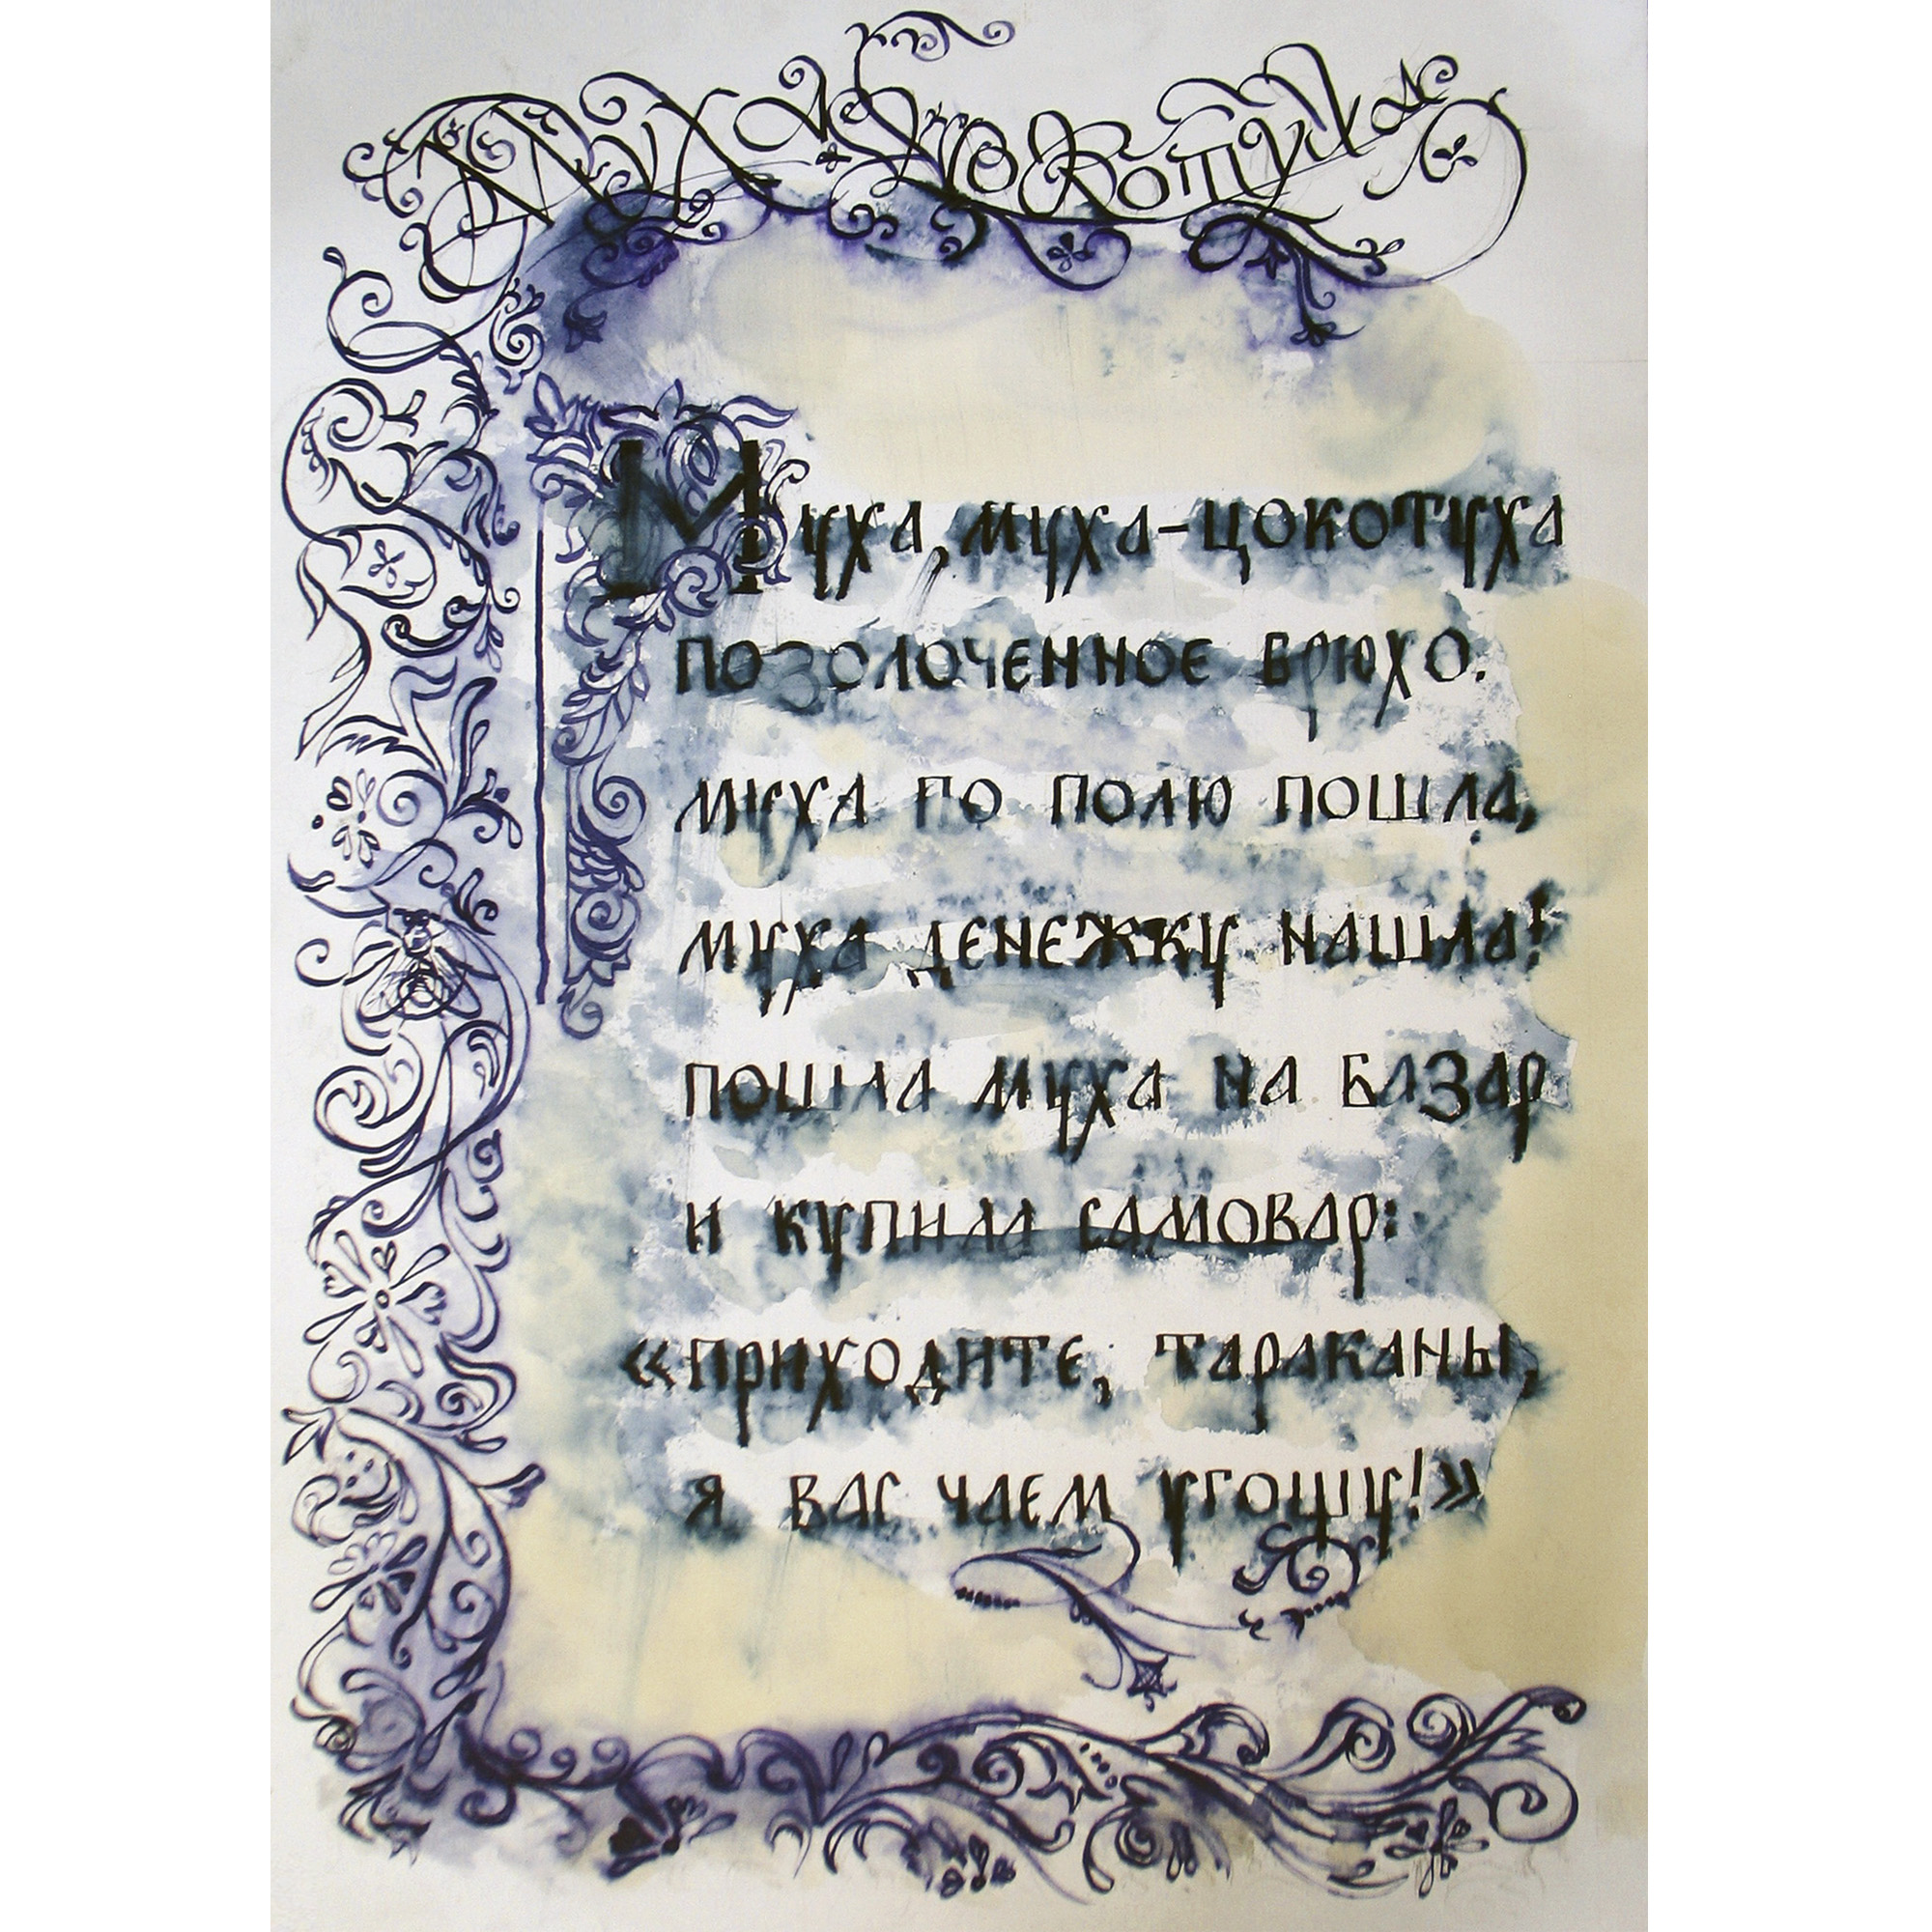 Муха Цокотуха
Муха, муха-цокотуха
позолоченное брюхо.
муха по полю пошла,
муха денежку нашла!
пошла муха на базар
и купила самовар:
«приходите, тараканы,
я вас чаем угощу!»